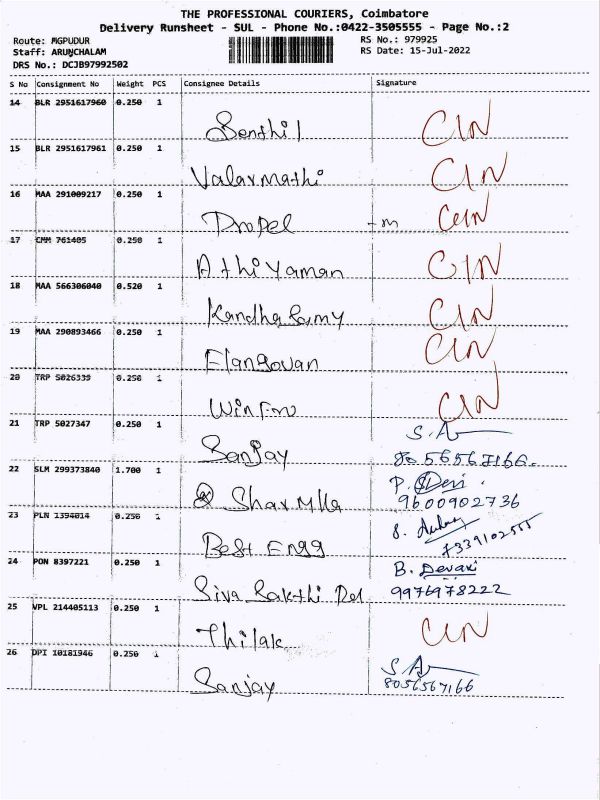 THE PROFESSIONAL COURIERS, Coimbatore
Delivery Runsheet - SUL - Phone No.:0422-3505555 - Page No.:2
Route: MGPUDUR
RS No.: 979925
Staff: ARUNCHALAM
RS Date: 15-Jul-2022
DRS No.: DCJB97992502
S No Consignment No Weight PCS Consignee Details Signature
14 BLR 2951617960 0.250 1
Senthil CIN
15 BLR 2951617961 0.250 1
Valarmathi CIN
16 MAA 291009217 0.250 1
Propel -m CIN
17 CMM 761405 0.250 1
Athiyaman CIN
18 MAA 566306040 0.520 1
Kandhasamy CIN
19 MAA 290893466 0.250 1
Elangovan CIN
20 TRP 5026339 0.250 1
CIN
21 TRP 5027347 0.250 1
Sanjay 8056567166
22 SLM 299373840 1.700 1
P. Devi
Sharmila 9600902736
23 PLN 1394014 0.250 1
Best Engg 7339102555
24 PON 8397221 0.250 1
B. Devaki
Siva Sakthi 9976978222
25 VPL 214405113 0.250 1
Thilak CIN
26 DPI 10181946 0.250 1
Sanjay 8056567166